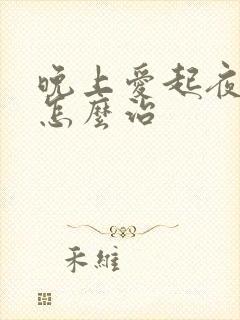 晚上愛起夜
怎麼治
禾維